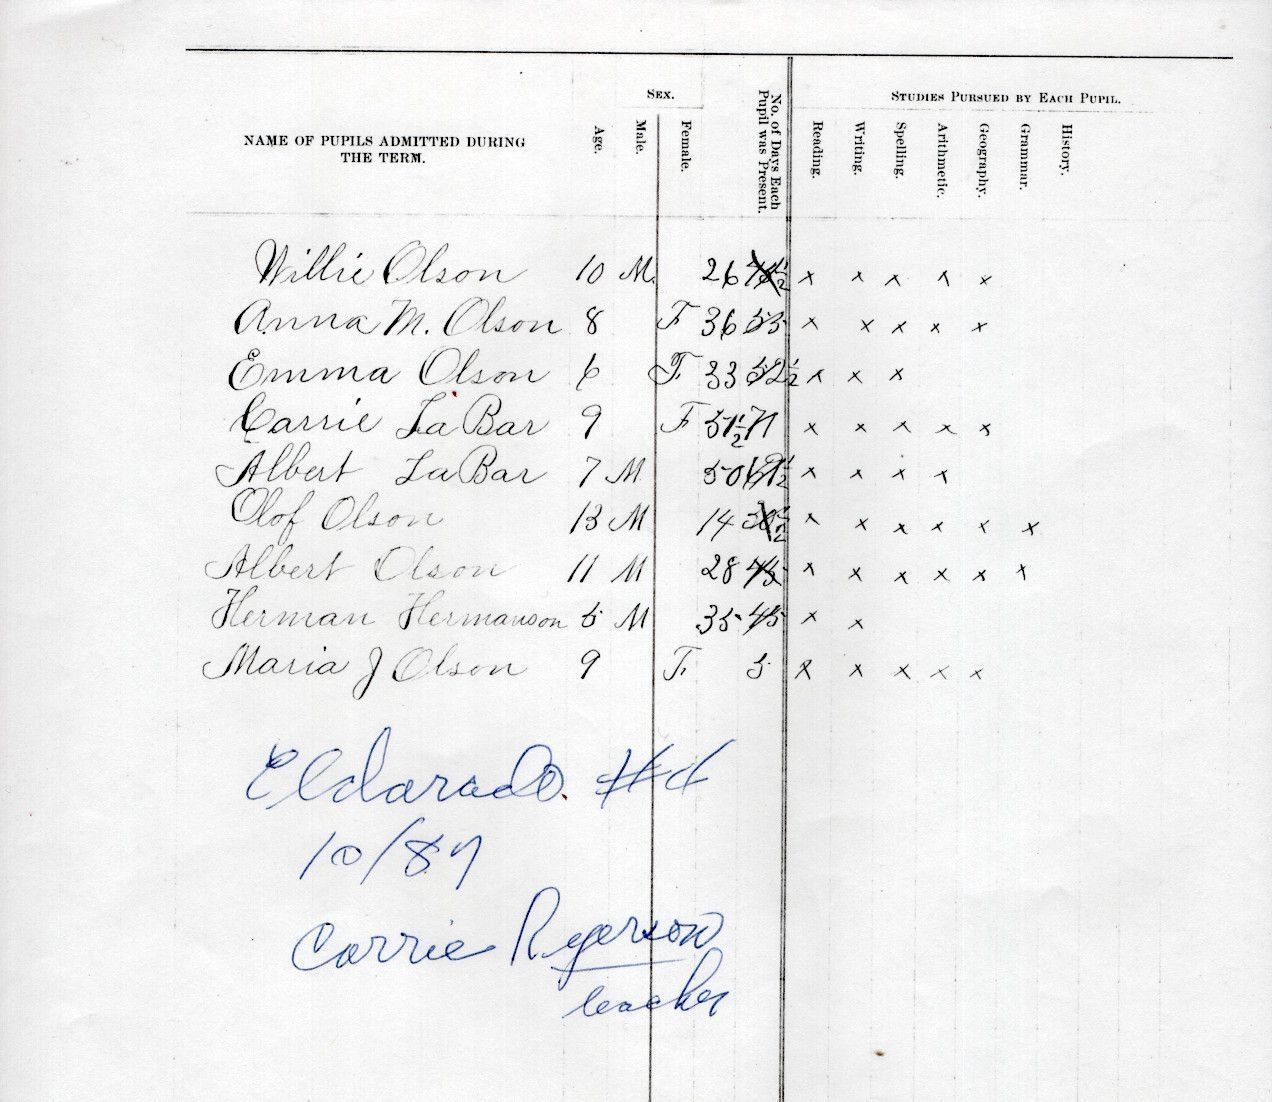 SEX.
STUDIES PURSUED BY EACH PUPIL.
NAME OF PUPILS ADMITTED DURING
THE TERM.
Age.
Male.
Female.
No. of Days Each
Pupil was Present.
Reading.
Writing.
Spelling.
Arithmetic.
Geography.
Grammar.
History.
Willie Olson 10 M. 26 x x x x x
Anna M. Olson 8 F 36 53 x x x x x
Emma Olson 6 F 33 52 1/2 x x x
Carrie La Bar 9 F 51 1/2 71 x x x x x
Albert La Bar 7 M 50 69 1/2 x x x x
Olof Olson 13 M 14 x x x x x x
Albert Olson 11 M 28 45 x x x x x x
Herman Hermanson 5 M 35 45 x x
Maria J Olson 9 F 5 x x x x x
Eldorado #6
10/87
Carrie Ryerson
teacher